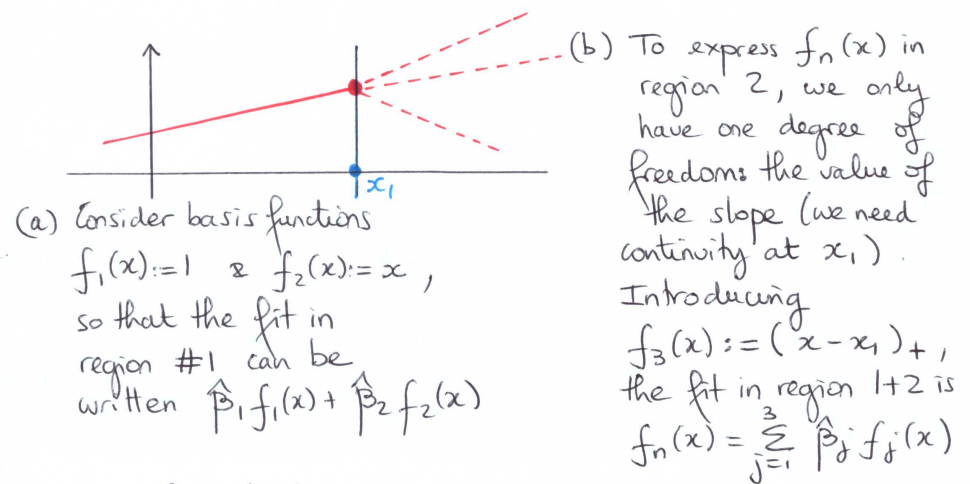 x₁
(a) Consider basis functions
f₁(x):=1 & f₂(x):= x ,
so that the fit in
region #1 can be
written β̂₁f₁(x) + β̂₂f₂(x)
(b) To express fₙ(x) in
region 2, we only
have one degree of
freedom: the value of
the slope (we need
continuity at x₁).
Introducing
f₃(x) := (x-x₁)₊ ,
the fit in region 1+2 is
fₙ(x) = Σ_{j=1}^{3} β̂ⱼ fⱼ(x)